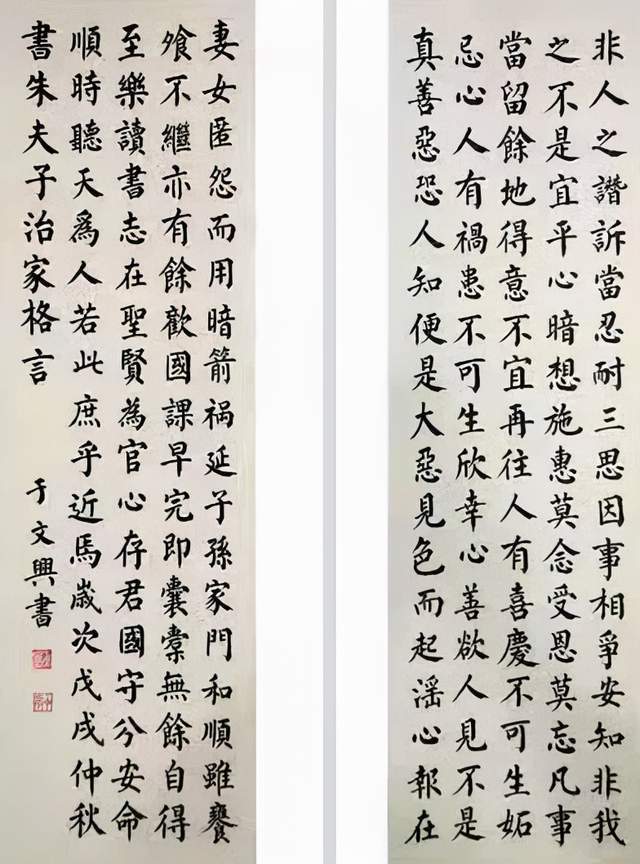 非人之譖訴當忍耐三思因事相爭安知非我
之不是宜平心暗想施惠莫念受恩莫忘凡事
當留餘地得意不宜再往人有喜慶不可生妬
忌心人有禍患不可生欣幸心善欲人見不是
真善惡恐人知便是大惡見色而起滛心報在
妻女匿怨而用暗箭祸延子孫家門和順雖饔
飧不繼亦有餘歡國課早完即囊橐無餘自得
至樂讀書志在聖賢為官心存君國守分安命
順時聽天爲人若此庶乎近焉歲次戊戌仲秋
書朱夫子治家格言
于文興書